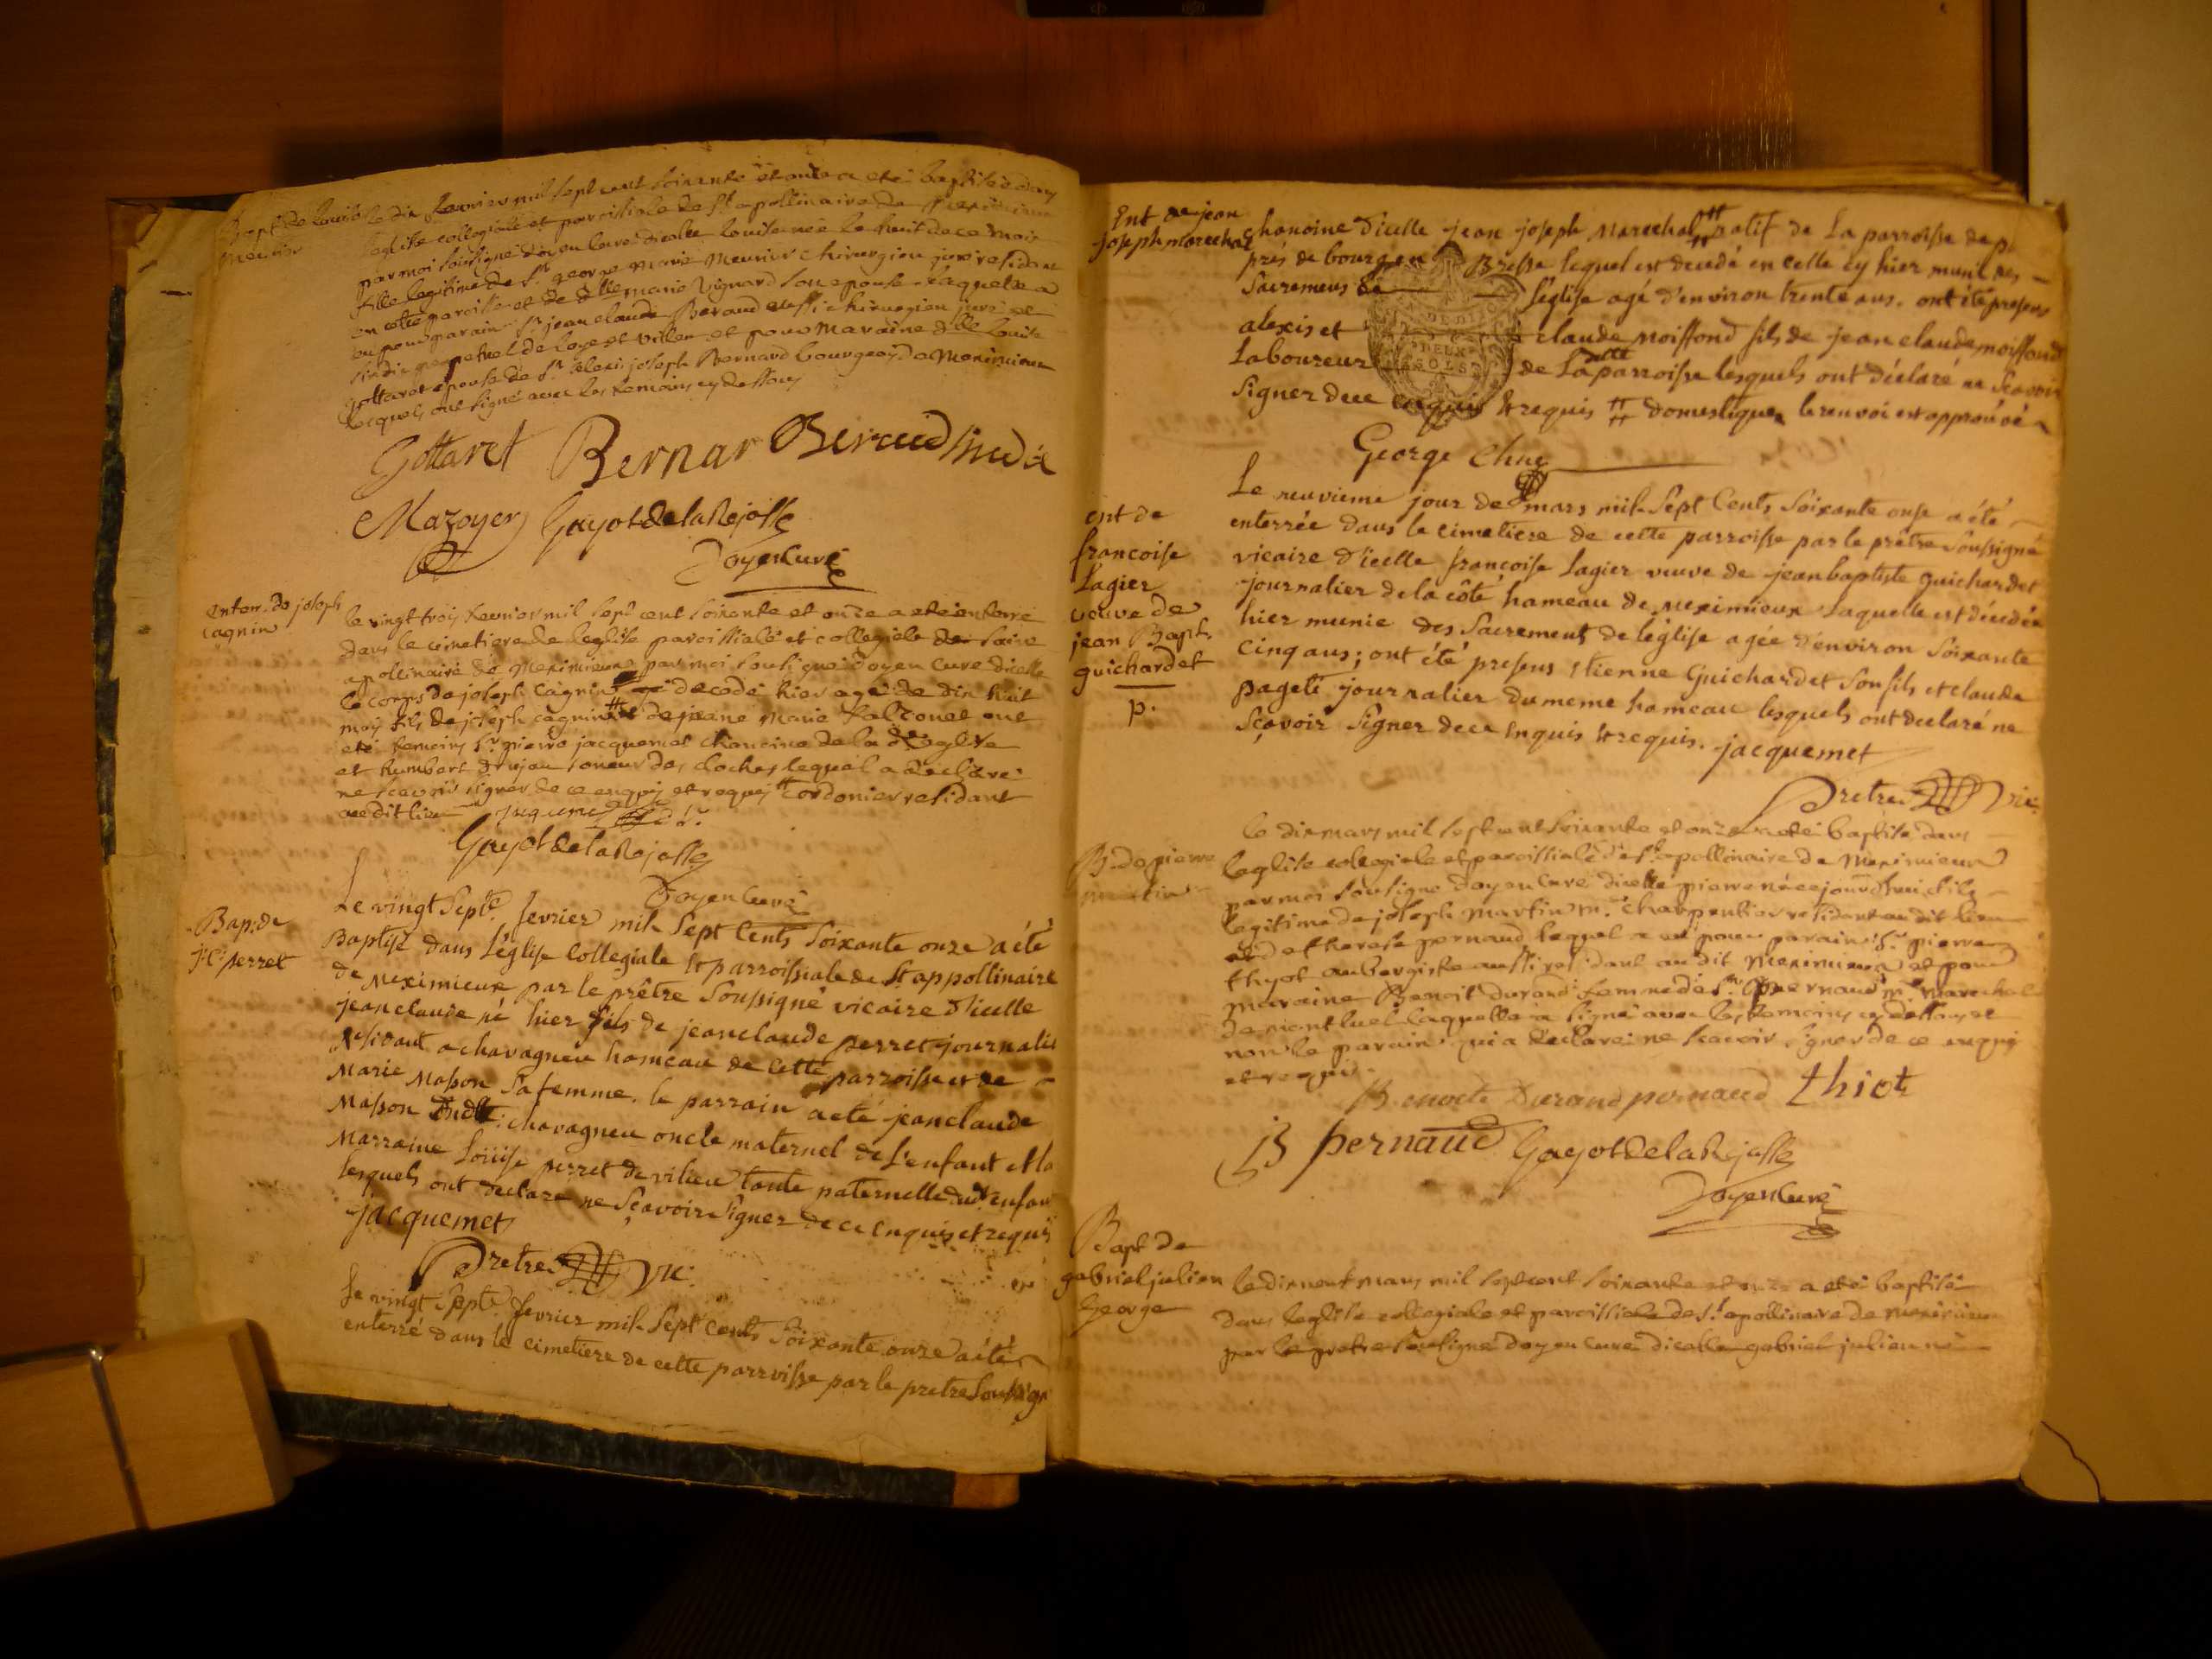 Bapt. de louise
meunier
le dix fevrier mil sept cent soixante et onze a eté baptisée dans
l'eglise collegiale et paroissiale de St. apollinaire de meximieux
par moi soussigné doyen curé d'icelle louise née le huit de ce mois
fille legitime de Sr. george marie meunier chirurgien juré residant
en cette paroisse et de dlle marie vignard son epouse laquelle a
eu pour parain Sr. jean claude Beraud aussi chirurgien juré et
sindic perpetuel de loye et villieu et pour maraine dlle louise
gottaret epouse de Sr. alexis joseph Bernard bourgeois de meximieux
lesquels ont signé avec les temoins cy dessous
Gottaret Bernar Beraud sindic
Mazoyer Gayot de la Rajasse
Doyen Curé
enterr. de joseph
cagnin
le vingt trois fevrier mil sept cent soixante et onze a eté enterré
dans le cimetiere de leglise paroissiale et collegiale de saint
apollinaire de meximieux par moi soussigné doyen curé dicelle
le corps de joseph cagnin decedé hier agé de dix huit
mois fils de joseph cagnin # et de jeane marie falconet ont
eté temoins Sr. pierre jacquemet chanoine de la de eglise
et humbert drujon soneur des cloches lequel a declaré
ne scavoir signer de ce enquis et requis # cordonier residant
audit lieu jacquemet
Gayot de la Rajasse
Doyen Curé
Bap: de
J: C: perret
Le vingt Septe. fevrier mil Sept Cents Soixante onze a été
Baptisé dans L'église Collegiale et parroissiale de St appollinaire
de meximieux par le prêtre Soussigné vicaire d'icelle
jean claude né hier fils de jean claude perret journalier
résidant a chavagneu hameau de cette parroisse et de
Marie Masson Sa femme. le parrain a été jean claude
Masson dudt. chavagneu oncle maternel de L'enfant et la
Marraine Loüise perret de vilieu tante paternelle dudt. enfant
lesquels ont declaré ne Sçavoir Signer de ce enquis et requis
jacquemet
Pretre Vic.
Le vingt Septe. fevrier mil Sept Cents Soixante onze a été
enterré dans le cimetiere de cette parroisse par le pretre Soussigné
Ent de jean
joseph marechal
chanoine d'icelle jean joseph Marechal # natif de La parroisse de
prés de bourg en Bresse lequel est decedé en celle cy hier muni des
Sacremens de L'église agé d'environ trente ans. ont été presens
alexis et claude moissond fils de jean claude moissond
Laboureur de Ladte parroisse lesquels ont déclaré ne Sçavoir
Signer de ce enquis et requis # domestique le renvoi est approuvé
DEUX SOLS
George Chne
ent de
francoise
Lagier
veuve de
jean Bapt.
guichardet
p.
Le neuvieme jour de mars mil Sept Cents Soixante onse a été
enterrée dans le cimetiere de cette parroisse par le prêtre Soussigné
vicaire d'icelle françoise Lagier veuve de jean baptiste guichardet
journalier de la côte hameau de meximieux Laquelle est décédée
hier munie des Sacrements de l'église agée d'environ Soixante
Cinq ans; ont été presens etienne Guichardet Son fils et claude
pageté journalier du meme hameau lesquels ont declaré ne
Sçavoir Signer de ce enquis et requis. jacquemet
Pretre Vic.
B. de pierre
martin
le dix mars mil sept cent soixante et onze a eté baptisé dans
leglise collegiale et paroissiale de St. apollinaire de meximieux
par moi soussigné doyen curé dicelle pierre né cejourdhui fils
legitime de joseph martin me. charpentier residant au dit lieu
et de therese pernaud lequel a eu pour parain Sr. pierre
thyot aubergiste aussi residant audit meximieux et pour
maraine Benoit durand femme de Sr. pernaud me. marechal
de montluel laquelle a signé avec les temoins cy dessous et
non le parain qui a declaré ne scavoir signer de ce enquis
et requis.
Benoite Durand pernaud thiot
B pernaud Gayot de la Rajasse
Doyen Curé
Bapt de
gabriel julien
George
le dix neuf mars mil sept cent soixante et onze a eté baptisé
dans leglise collegiale et paroissiale de St. apollinaire de meximieux
par le pretre soussigné doyen curé dicelle gabriel julien né